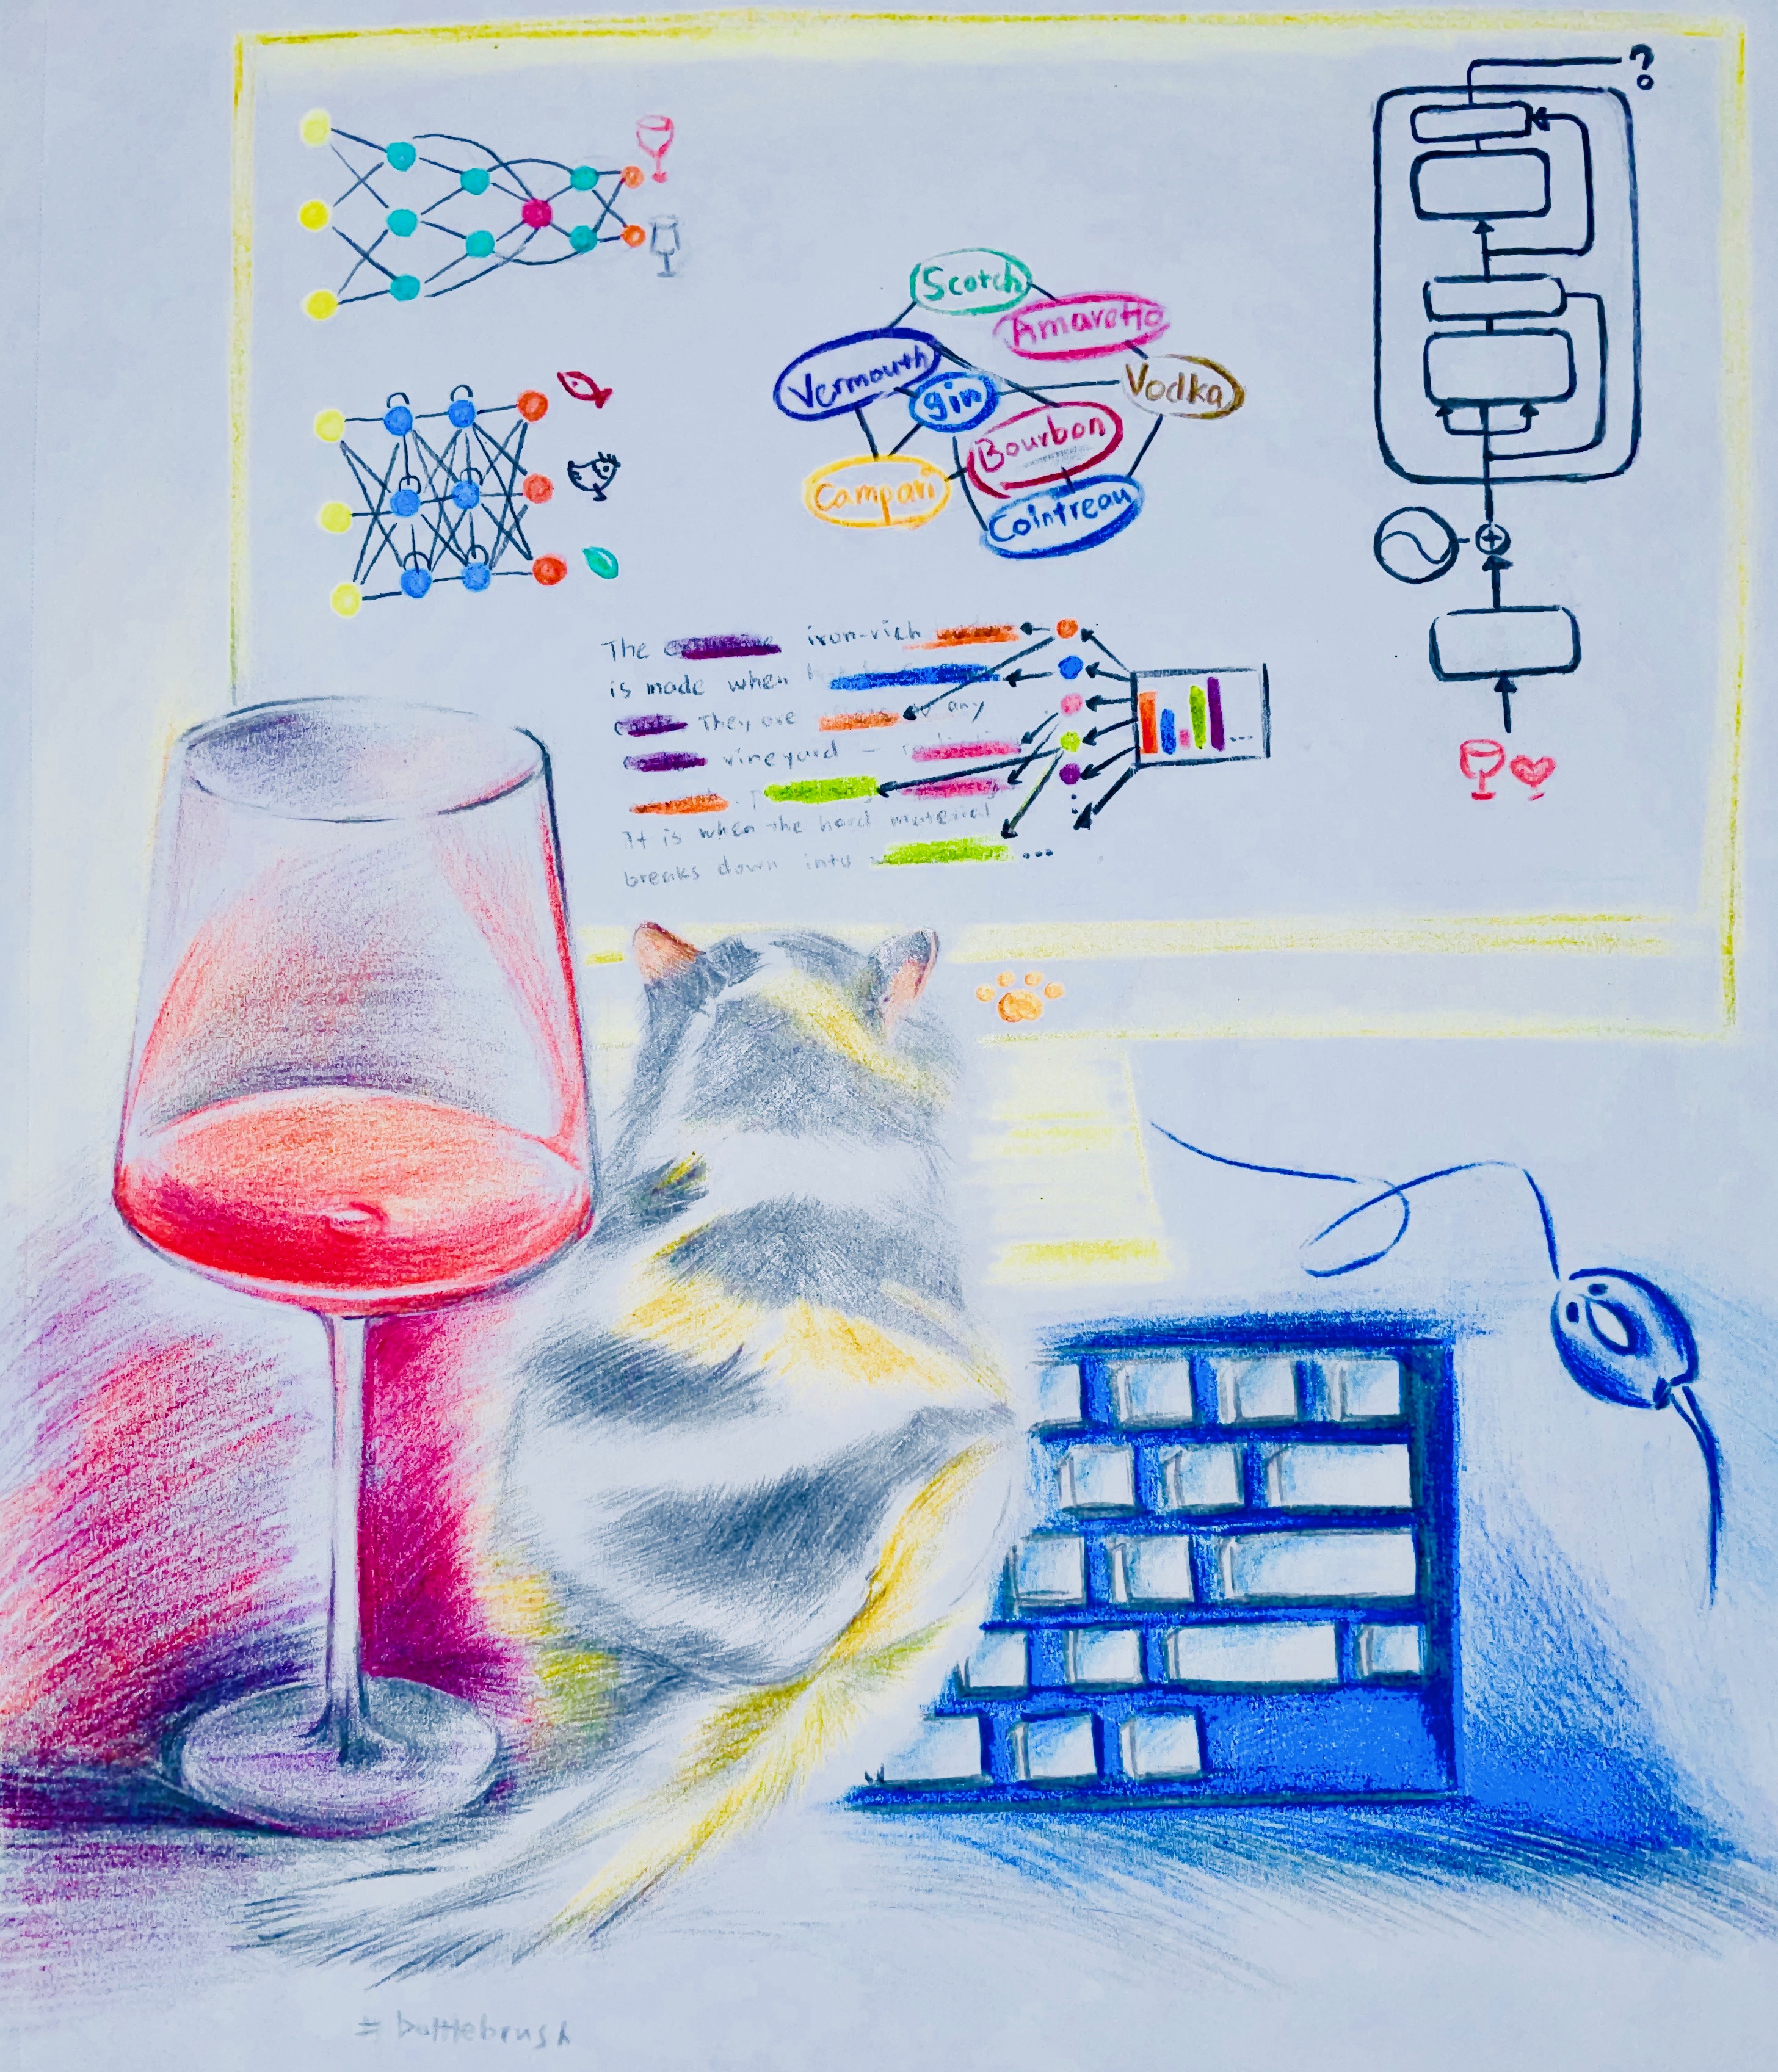 ?
Scotch
Amaretto
Vermouth
gin
Vodka
Bourbon
Campari
Cointreau
The iron-rich
is made when
They are any
vineyard –
It is when the hard material
breaks down into ...
...
# bottlebrush